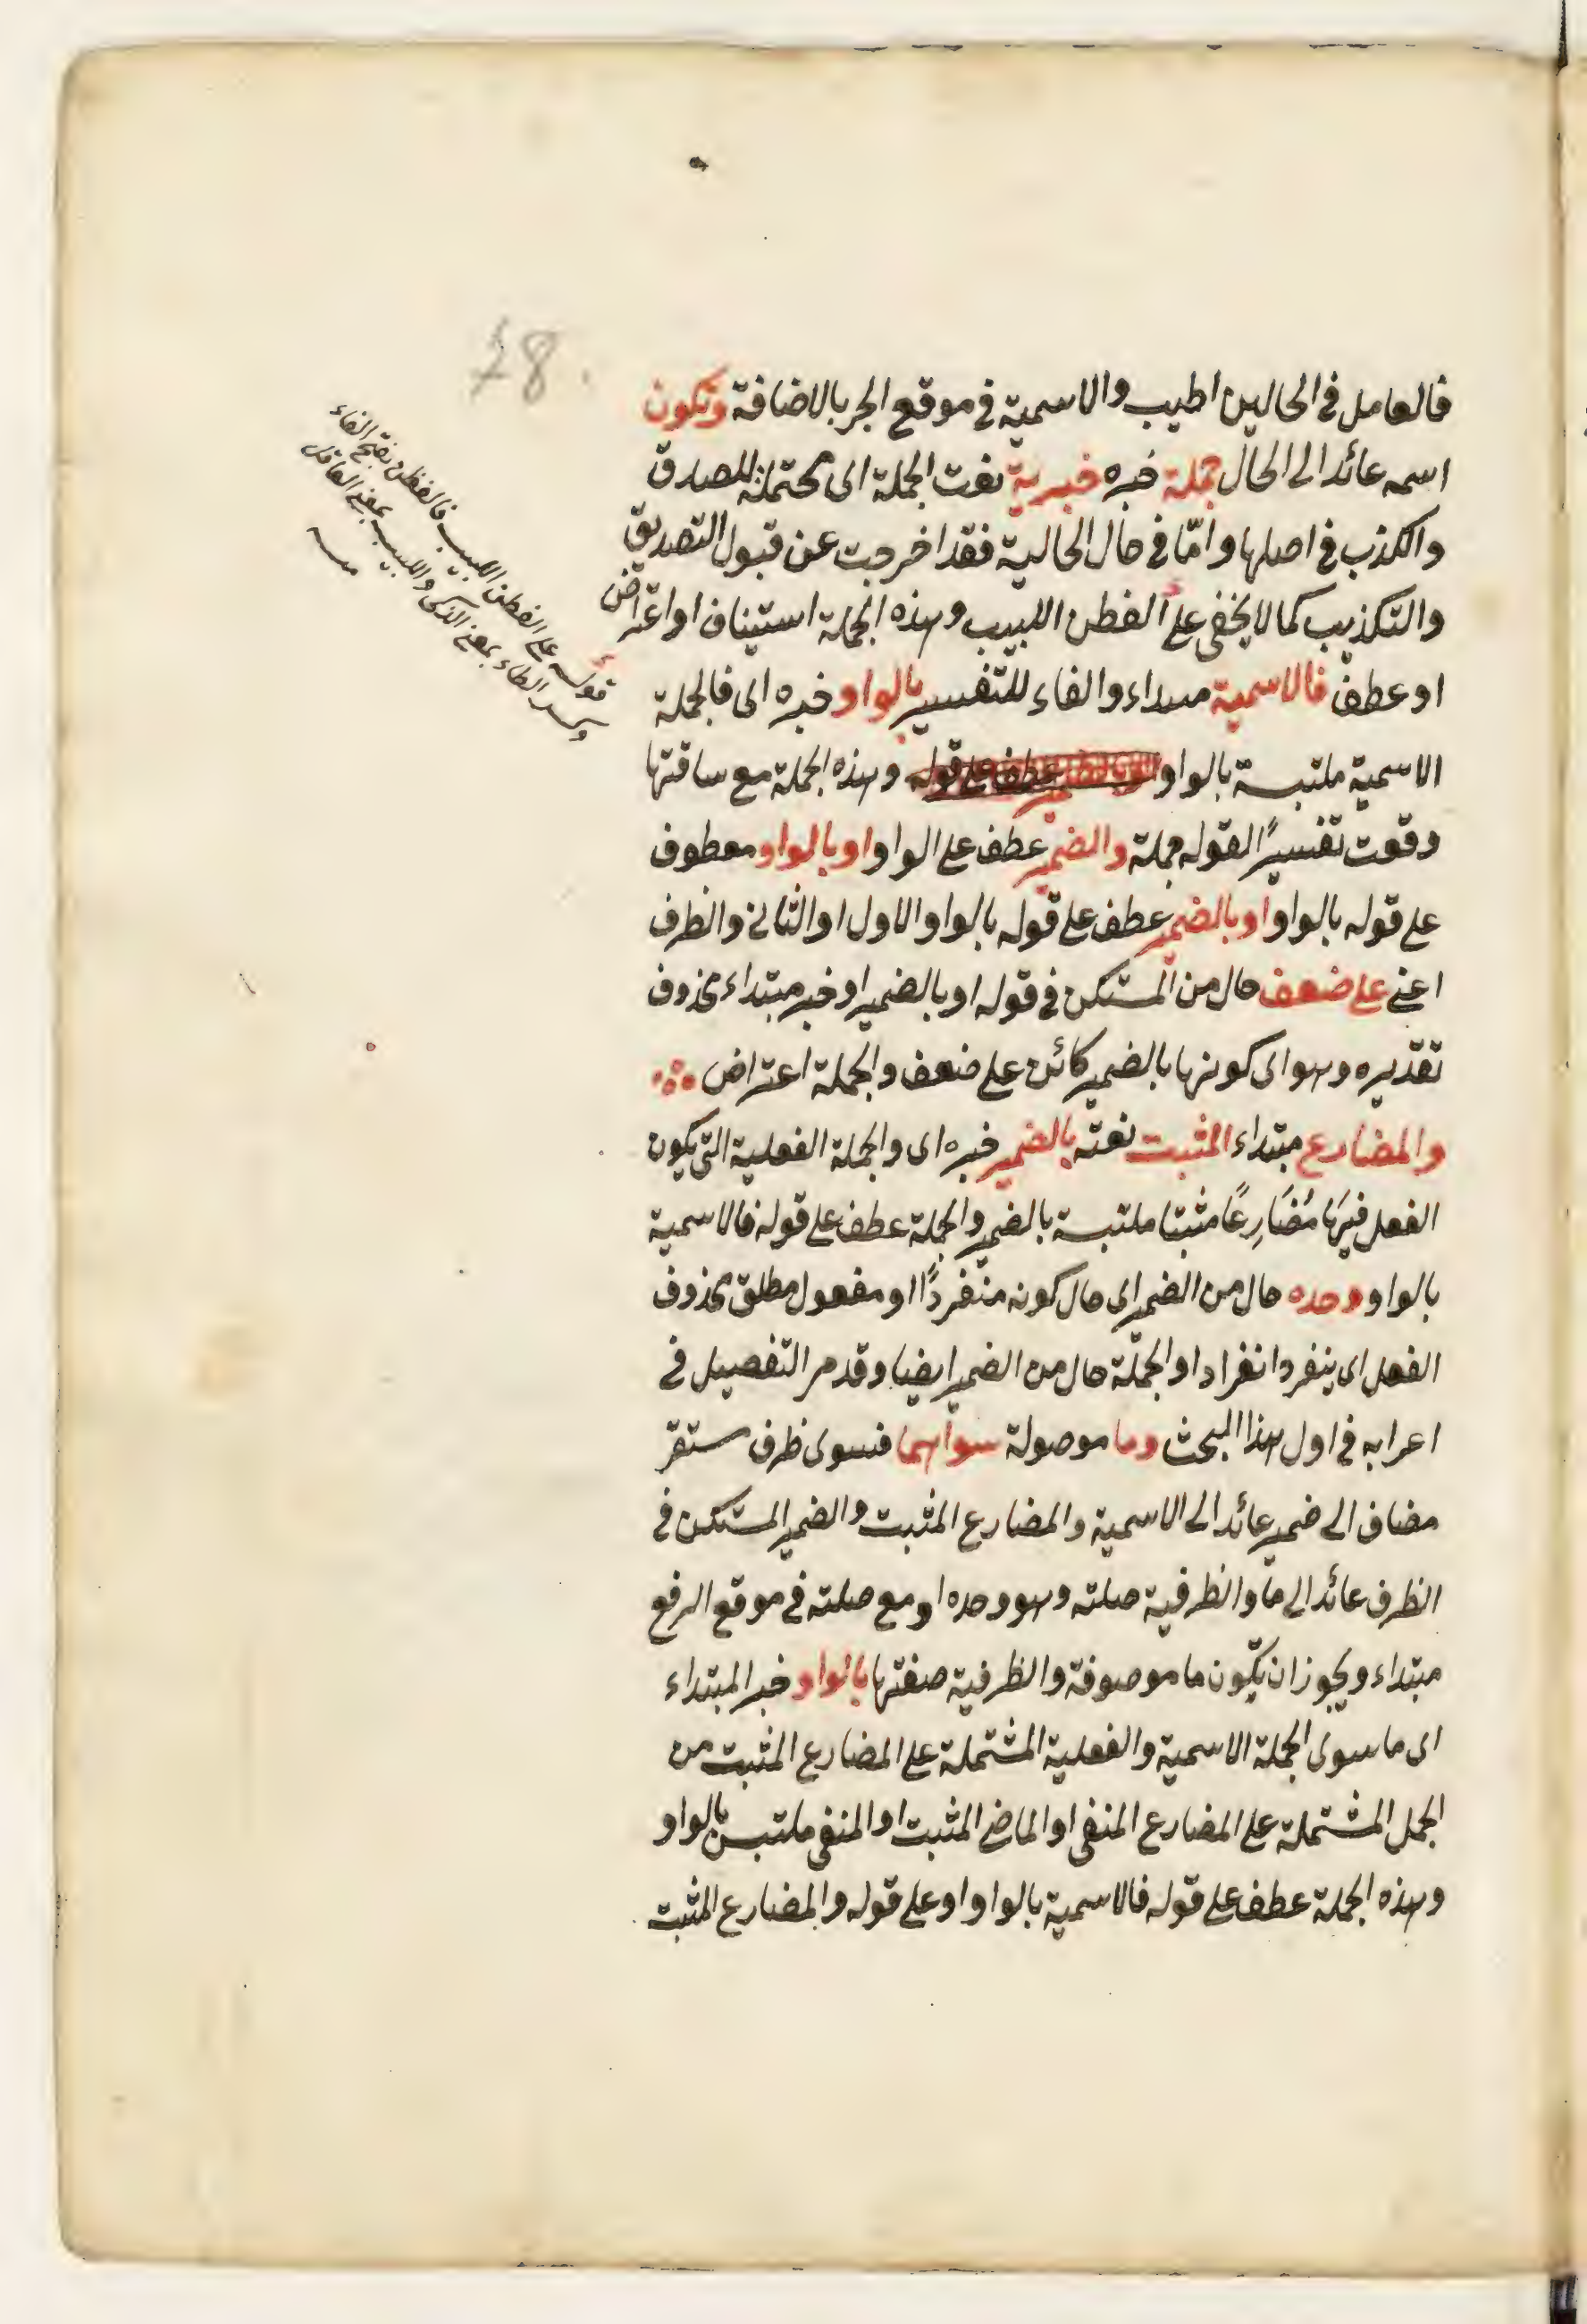 78.
فالعامل فى الحالين اطيب والاسمية فى موقع الجر بالاضافة وتكون
اسمه عائد الى الحال جملة خبره خبرية نعت الجملة اى محتملة للصدق
والكذب فى اصلها وامّا فى حال الحالية فقد اخرجت عن قبول التصديق
والتكذيب كما لا يخفى على الفطن اللبيب وهذه الجملة استيناف او اعتراض
او عطف فالاسمية مبتداء والفاء للتفسير بالواو خبره اى فالجملة
الاسمية ملتبسة بالواو عطف على قوله وهذه الجملة مع ساقتها
وقعت تفسيرًا لقوله جملة والضمير عطف على الواو او بالواو معطوف
على قوله بالواو او بالضمير عطف على قوله بالواو الاول او الثانى والظرف
اعنى على ضعف حال من المستكن فى قوله او بالضمير او خبر مبتداء محذوف
تقديره وهو اى كونها بالضمير كائن على ضعف والجملة اعتراض
والمضارع مبتداء المثبت نعته بالضمير خبره اى والجملة الفعلية التى يكون
الفعل فيهَا مُضَارِعًا مثبتا ملتبسة بالضمير والجملة عطف على قوله فالاسمية
بالواو وحده حال من الضمير اى حال كونه منفردًا او مفعول مطلق محذوف
الفعل اى ينفرد انفرادا والجملة حال من الضمير ايضا وقد مر التفصيل فى
اعرابه فى اول هذا المبحث وما موصولة سواهما فسوى ظرف مستقر
مضاف الى ضمير عائد الى الاسمية والمضارع المثبت والضمير المستكن فى
الظرف عائد الى ما والظرفية صلته وهو وحده او مع صلته فى موقع الرفع
مبتداء ويجوز ان يكون ما موصوفة والظرفية صفتها بالواو خبر المبتداء
اى ما سوى الجملة الاسمية والفعلية المشتملة على المضارع المثبت من
الجمل المشتملة على المضارع المنفى او الماضى المثبت او المنفى ملتبس بالواو
وهذه الجملة عطف على قوله فالاسمية بالواو او على قوله والمضارع المثبت
قوله على الفطن اللبيب فالفطن بفتح الفاء
وكسر الطاء بمعنى الذكى واللبيب بمعنى العاقل
منه